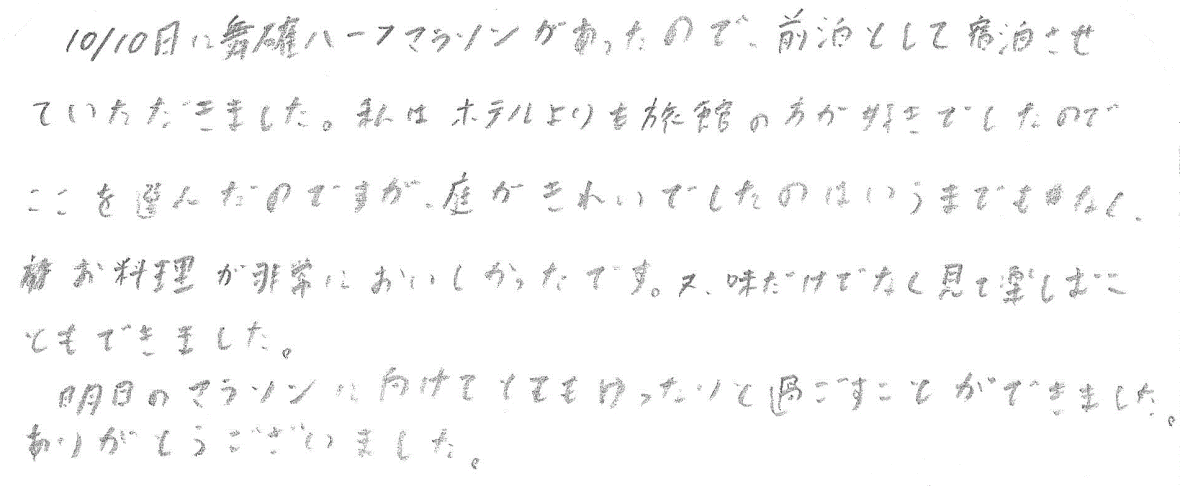 10/10日に舞確ハーフマラソンがあったので、前泊として宿泊させ
ていただきました。私はホテルよりも旅館の方が好きでしたので
ここを選んだのですが、庭がきれいでしたのはいうまでもなく、
お料理が非常においしかったです。又、味だけでなく見て楽しむこ
ともできました。
明日のマラソンに向けてとてもゆったりと過ごすことができました。
ありがとうございました。